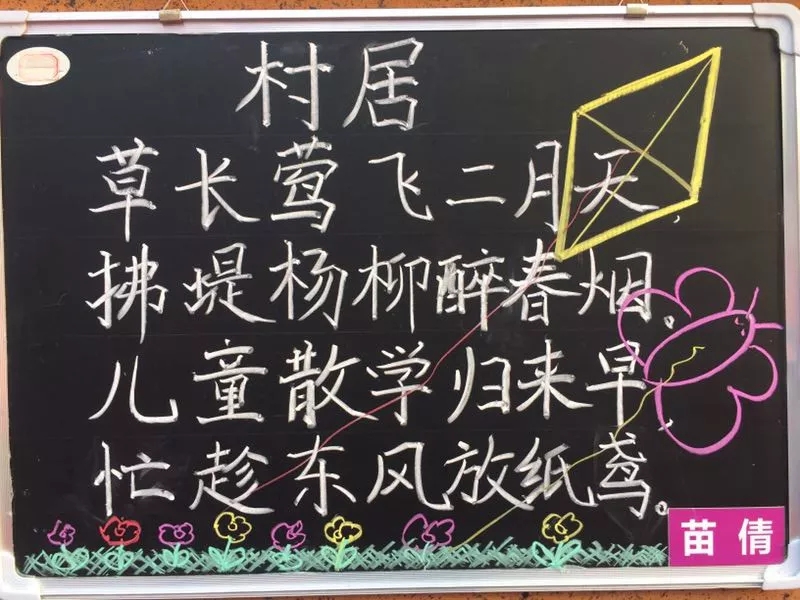 村居
草长莺飞二月天
拂堤杨柳醉春烟
儿童散学归来早
忙趁东风放纸鸢。
苗倩